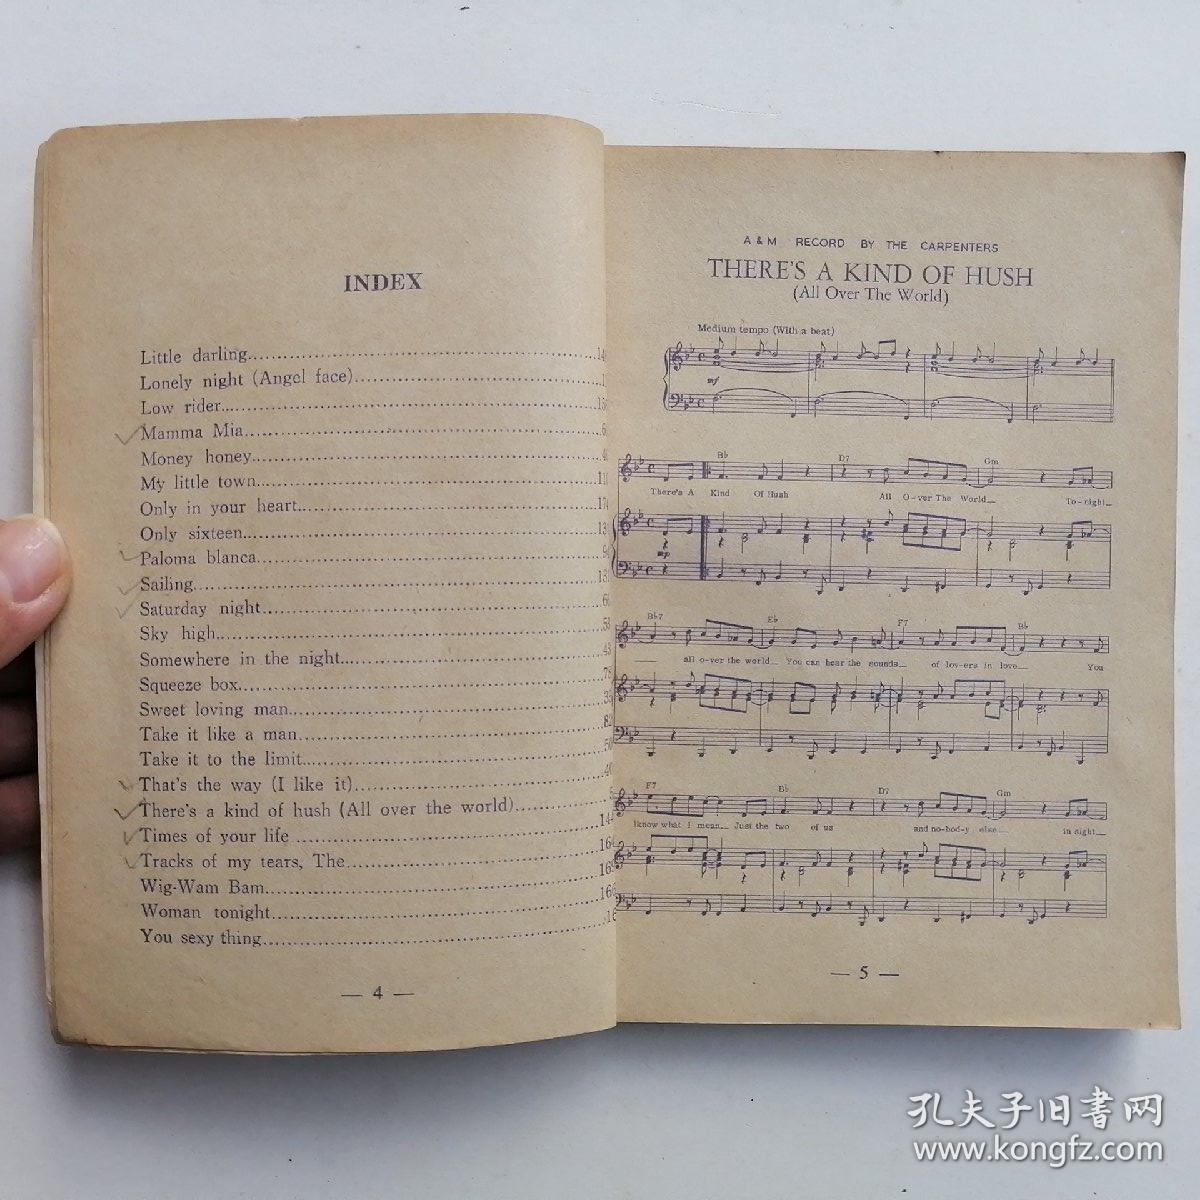 INDEX
Little darling
Lonely night (Angel face)
Low rider
Mamma Mia
Money honey
My little town
Only in your heart
Only sixteen
Paloma blanca
Sailing
Saturday night
Sky high
Somewhere in the night
Squeeze box
Sweet loving man
Take it like a man
Take it to the limit
That's the way (I like it)
There's a kind of hush (All over the world)
Times of your life
Tracks of my tears, The
Wig-Wam Bam
Woman tonight
You sexy thing
— 4 —
A & M RECORD BY THE CARPENTERS
THERE'S A KIND OF HUSH
(All Over The World)
Medium tempo (With a beat)
mf
Bb D7 Gm
There's A Kind Of Hush All O-ver The World To-night
mp
Bb7 Eb F7 Bb
all o-ver the world You can hear the sounds of lov-ers in love You
F7 Bb D7 Gm
know what I mean Just the two of us and no-bod-y else in sight
— 5 —
孔夫子旧书网
www.kongfz.com